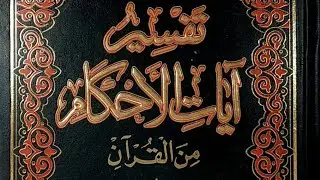 تَفْسِيْرُ
آيَاتِ الْأَحْكَامِ
مِنَ الْقُرْآنِ